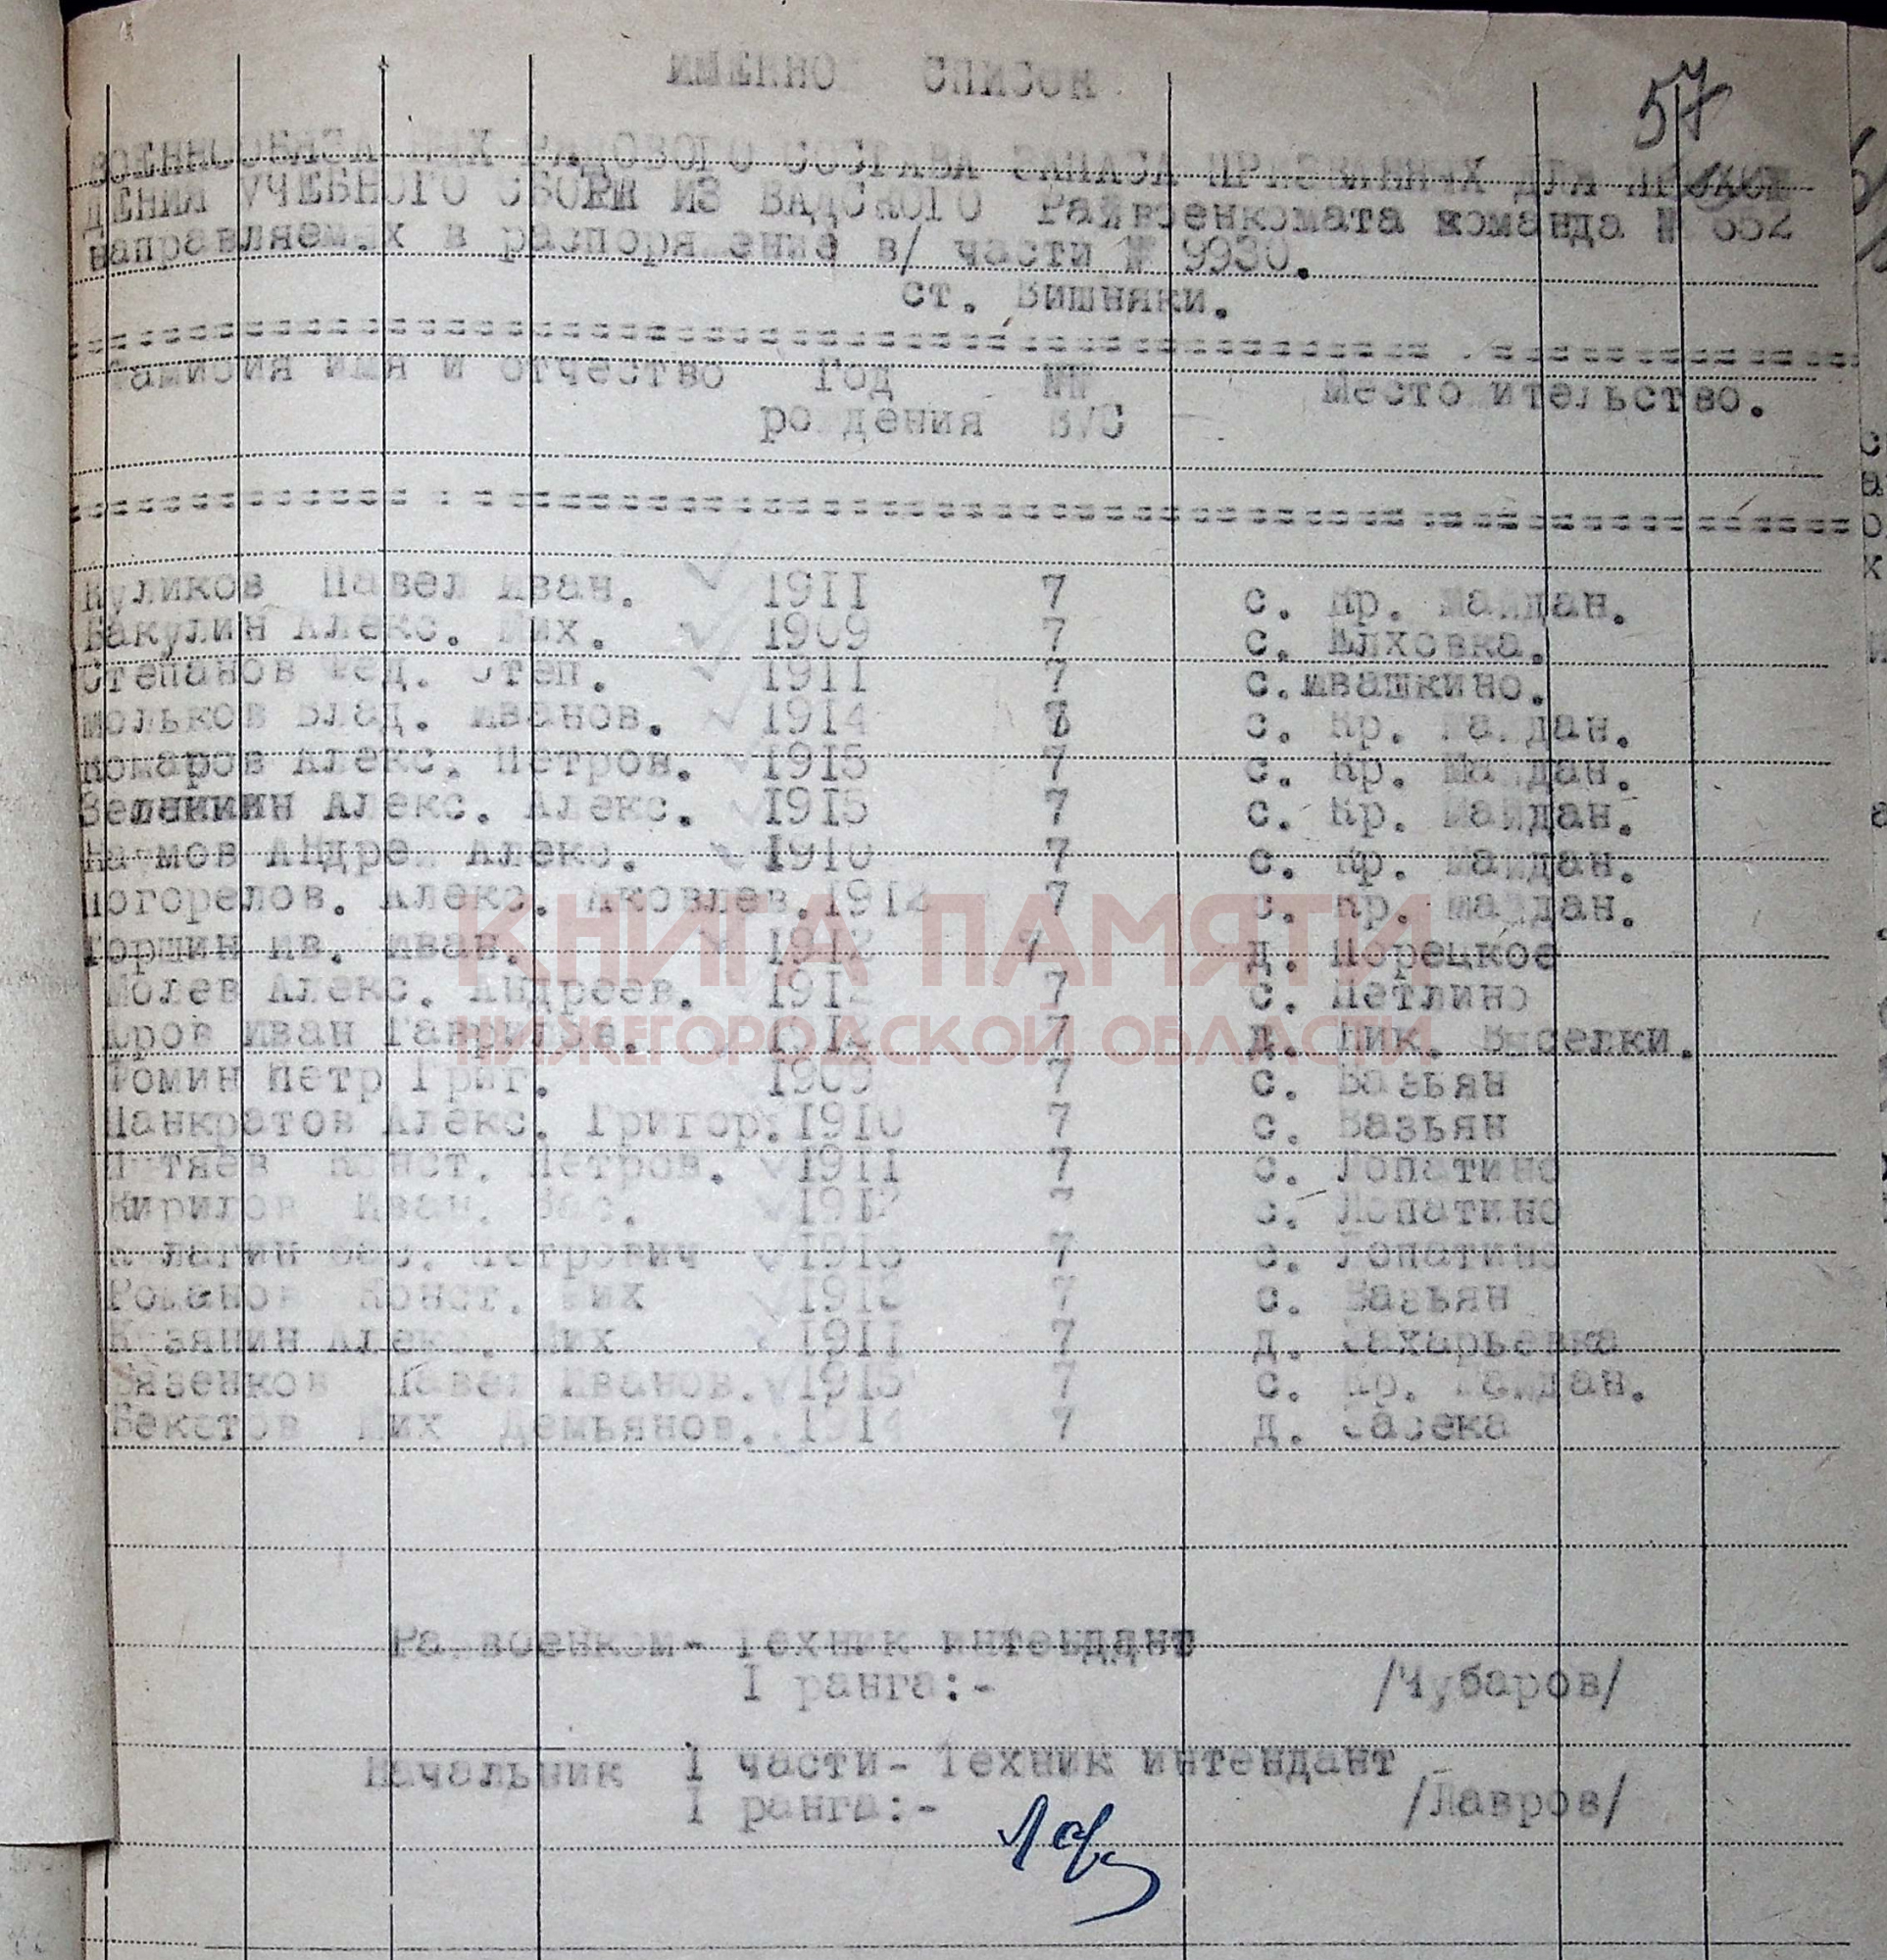 57
ИМЕННО СПИСОК
ВОЕННООБЯЗАННЫХ РЯДОВОГО СОСТАВА ЗАПАСА ПРИЗВАННЫХ ДЛЯ ПРОХОЖ
ДЕНИЯ УЧЕБНОГО СБОРА ИЗ ВАДСКОГО Райвоенкомата команда № 652
направляемых в распоряжение в/ части № 9930.
ст. Вишняки.
Фамилия имя и отчество Год №№ Место ительство.
рождения В/С
Куликов Павел Иван. 1911 7 с. Кр. Майдан.
Бакулин Алекс. Мих. 1909 7 с. Елховка.
Степанов Фед. Степ. 1911 7 с.Ивашкино.
Мольков Влад. Иванов. 1914 7 с. Кр. Майдан.
Комаров Алекс. Петров. 1915 7 с. Кр. Майдан.
Алекс. Алекс. 1915 7 с. Кр. Майдан.
Наумов Андрей Алекс. 1910 7 с. Кр. Майдан.
Погорелов. Алекс. Яковлев. 1912 7 с. Кр. Майдан.
Горшин Ив. Иван. 1912 7 д. Порецкое
Молев Алекс. Андреев. 1912 7 с. Петлино
Иван Гаврилов. 7 д. Ник. Выселки.
Фомин Петр Григ. 1909 7 с. Вазьян
Панкратов Алекс. Григор. 1910 7 с. Вазьян
Конст. Петров. 1911 7 с. Лопатино
Кирилов Иван. Вас. 1912 7 с. Лопатино
Вас. Петрович 7 с. Лопатино
Романов Конст. Мих 7 с. Вазьян
Алекс. Мих 1911 7 д. Захарьевка
Вязенков Павел Иванов. 1915 7 с. Кр. Майдан.
Бекетов Мих Демьянов. 1914 7 д. Засека
Райвоенком- Техник интендант
I ранга:- /Чубаров/
Начальник I части- Техник интендант
I ранга:- /Лавров/
КНИГА ПАМЯТИ
НИЖЕГОРОДСКОЙ ОБЛАСТИ